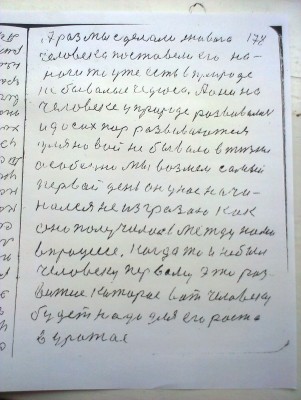 А раз мы сделали живого 174
человека поставели его на-
ноги то уже есть в природе
не бывалые чудеса. А они на
человеке у природе развивались
и до сих пор развиваются
для новой не бывало в жизни
особенно мы возмем самый
первый день он у нас начи-
нался не из разаю как
оно получилось между нами
в процесе. Когда то и не был
человеку первому это раз-
витие которое вот человеку
будет надо для его роста
в урожае